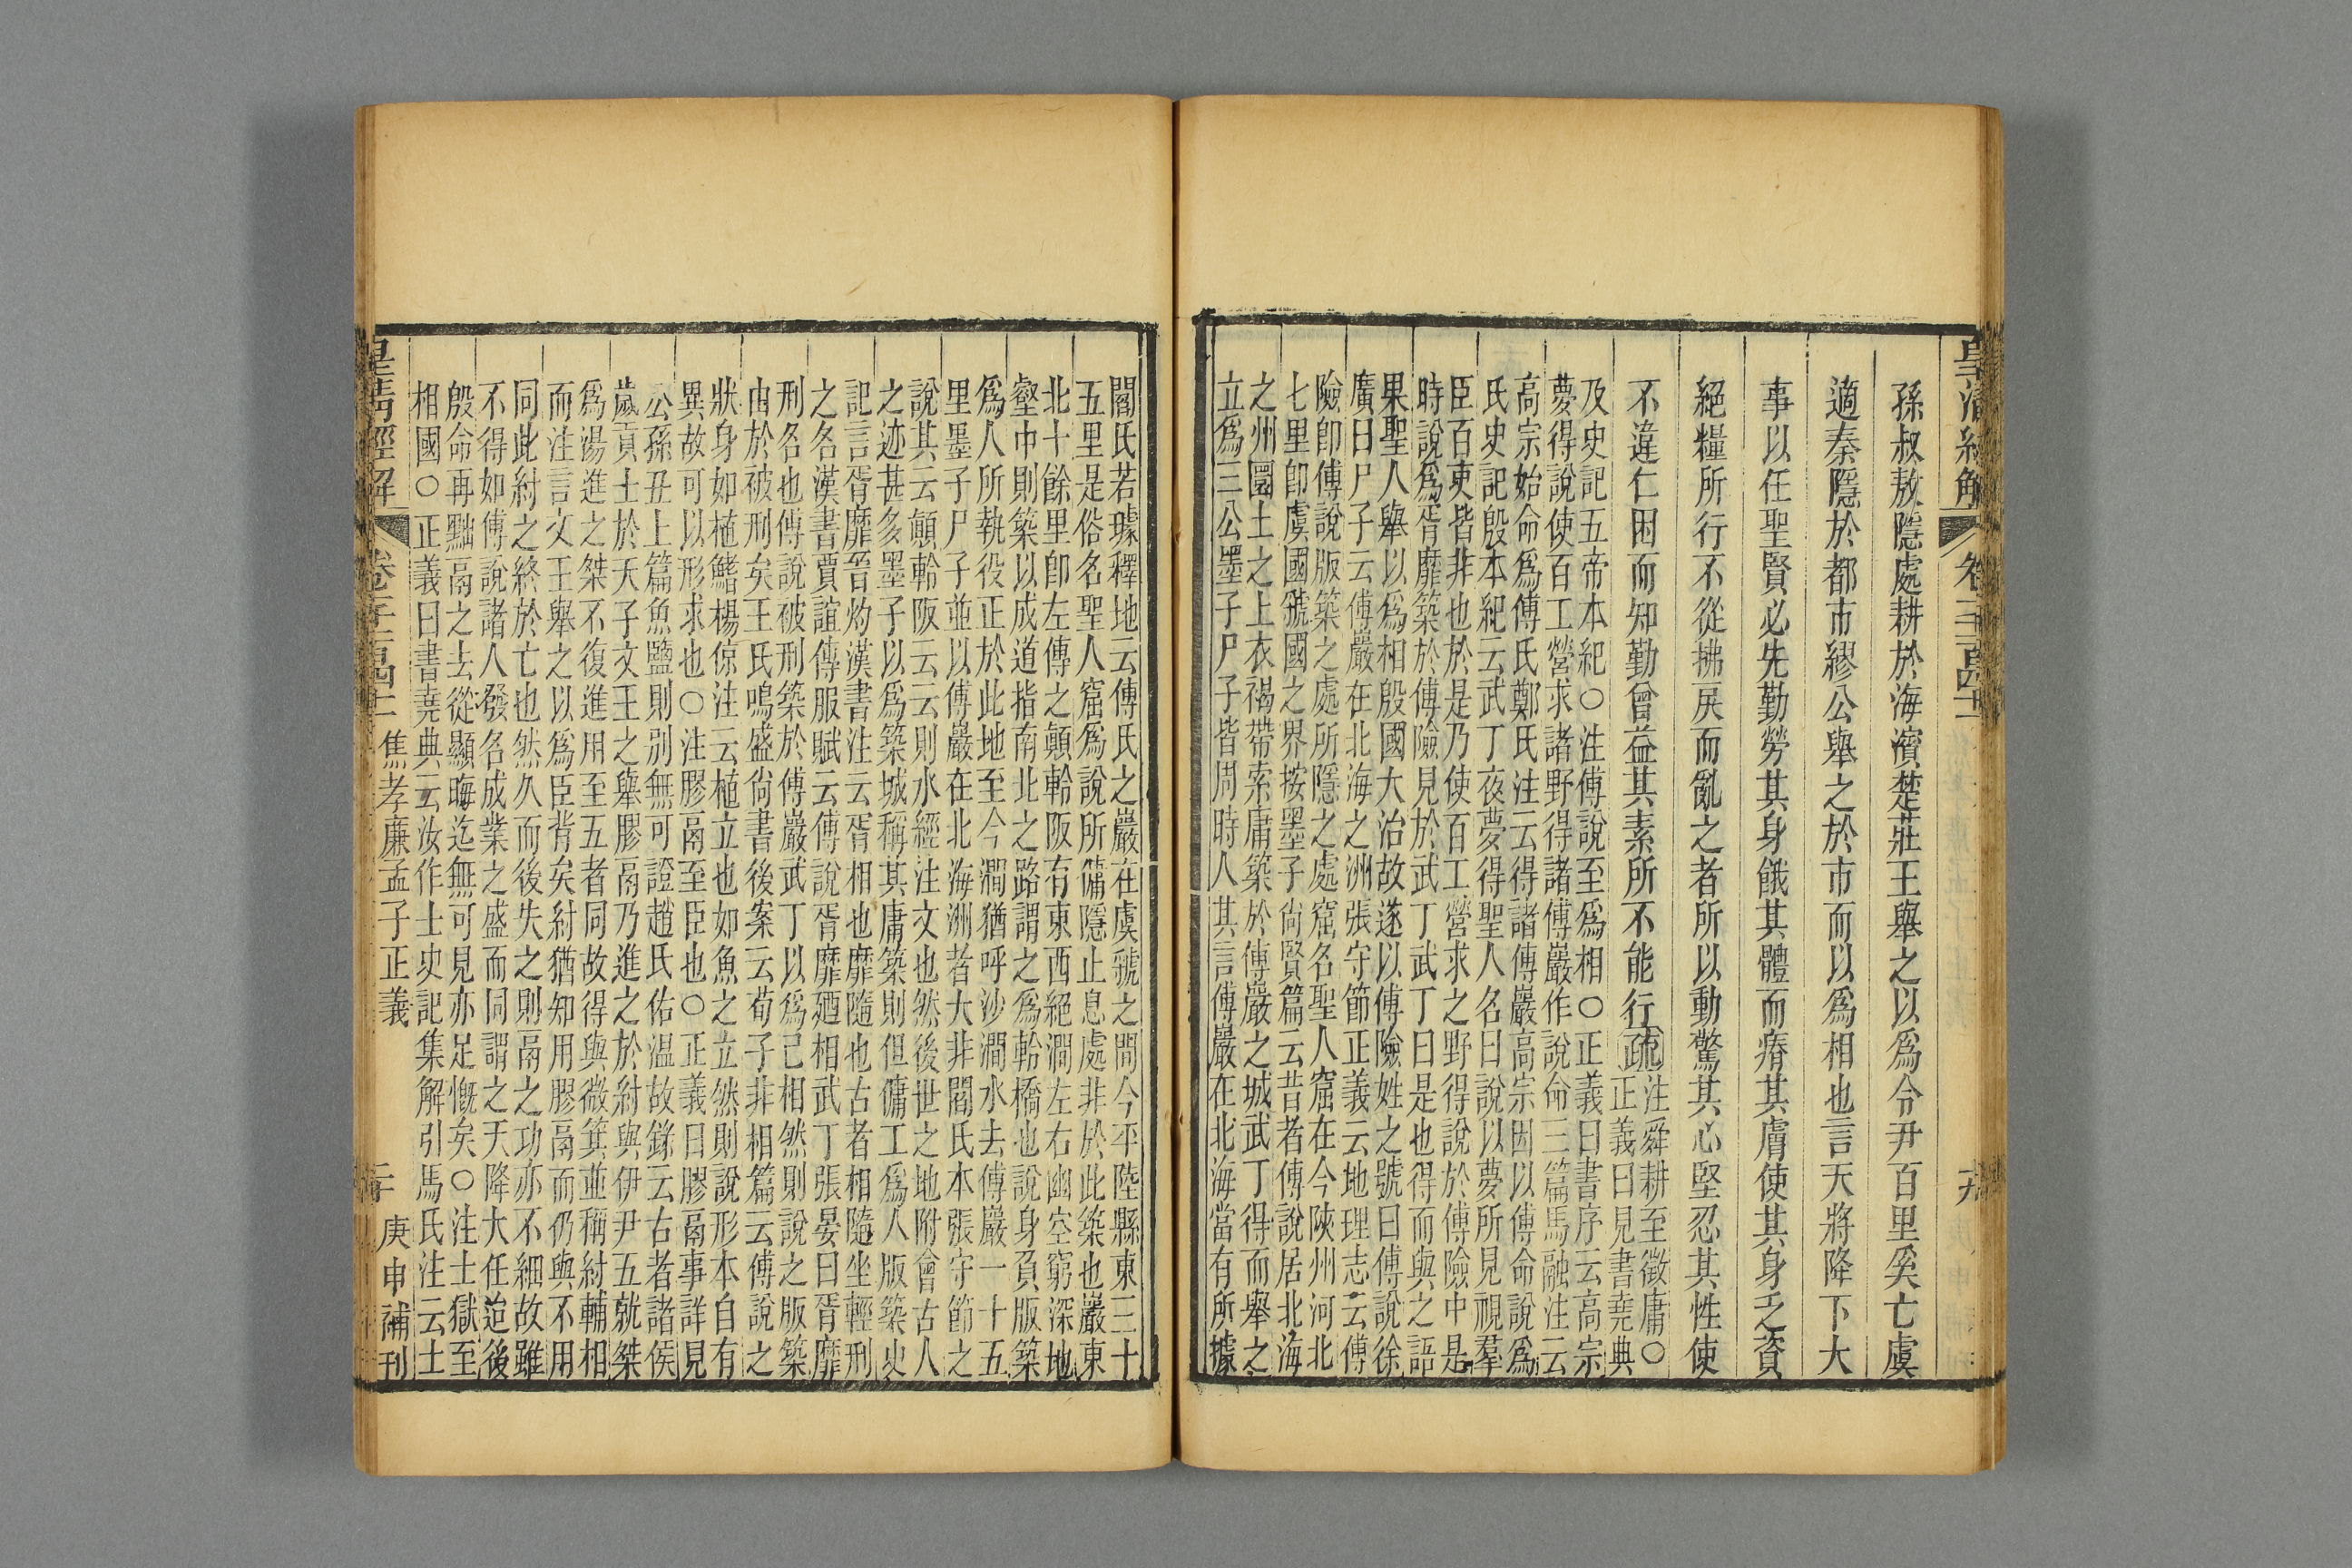 皇清經解
卷一千一百四十一
九
孫叔敖隱處耕於海濱楚莊王舉之以爲令尹百里奚亡虞
適秦隱於都市繆公舉之於市而以爲相也言天將降下大
事以任聖賢必先勤勞其身餓其體而瘠其膚使其身乏資
絕糧所行不從拂戾而亂之者所以動驚其心堅忍其性使
不違仁困而知勤曾益其素所不能行疏
注舜耕至徵庸○
正義曰見書堯典
及史記五帝本紀○注傅說至爲相○正義曰書序云高宗
夢得說使百工營求諸野得諸傅巖作說命三篇馬融注云
高宗始命爲傅氏鄭氏注云得諸傅巖高宗因以傅命說爲
氏史記殷本紀云武丁夜夢得聖人名曰說以夢所見視羣
臣百吏皆非也於是乃使百工營求之野得說於傅險中是
時說爲胥靡築於傅險見於武丁武丁曰是也得而與之語
果聖人舉以爲相殷國大治故遂以傅險姓之號曰傅說徐
廣曰尸子云傅巖在北海之洲張守節正義云地理志云傅
險卽傅說版築之處所隱之處窟名聖人窟在今陝州河北
七里卽虞國虢國之界按墨子尚賢篇云昔者傅說居北海
之州圜土之上衣褐帶索庸築於傅巖之城武丁得而舉之
立爲三公墨子尸子皆周時人其言傅巖在北海當有所據
閻氏若璩釋地云傅氏之巖在虞虢之間今平陸縣東三十
五里是俗名聖人窟爲說所傭隱止息處非於此築也巖東
北十餘里卽左傳之顛軨阪有東西絕澗左右幽空窮深地
壑中則築以成道指南北之路謂之爲軨橋也說身負版築
爲人所執役正於此地至今澗猶呼沙澗水去傅巖一十五
里墨子尸子並以傅巖在北海洲者大非閻氏本張守節之
說其云顛軨阪云云則水經注文也然後世之地附會古人
之迹甚多墨子以爲築城稱其庸築則但傭工爲人版築史
記言胥靡晉灼漢書注云胥相也靡隨也古者相隨坐輕刑
之名漢書賈誼傳服賦云傅說胥靡廼相武丁張晏曰胥靡
刑名也傅說被刑築於傅巖武丁以爲己相然則說之版築
由於被刑矣王氏鳴盛尚書後案云荀子非相篇云傅說之
狀身如植鰭楊倞注云植立也如魚之立然則說形本自有
異故可以形求也○注膠鬲至臣也○正義曰膠鬲事詳見
公孫丑上篇魚鹽則別無可證趙氏佑溫故錄云古者諸侯
歲貢士於天子文王之舉膠鬲乃進之於紂與伊尹五就桀
爲湯進之桀不復進用至五者同故得與微箕並稱紂輔相
而注言文王舉之以爲臣背矣紂猶知用膠鬲而仍與不用
同此紂之終於亡也然久而後失之則鬲之功亦不細故雖
不得如傅說諸人發名成業之盛而同謂之天降大任迨後
殷命再黜鬲之去從顯晦迄無可見亦足慨矣○注士獄至
相國○正義曰書堯典云汝作士史記集解引馬氏注云士
皇清經解
卷一千一百四十一
焦孝廉孟子正義
二十
庚申補刊